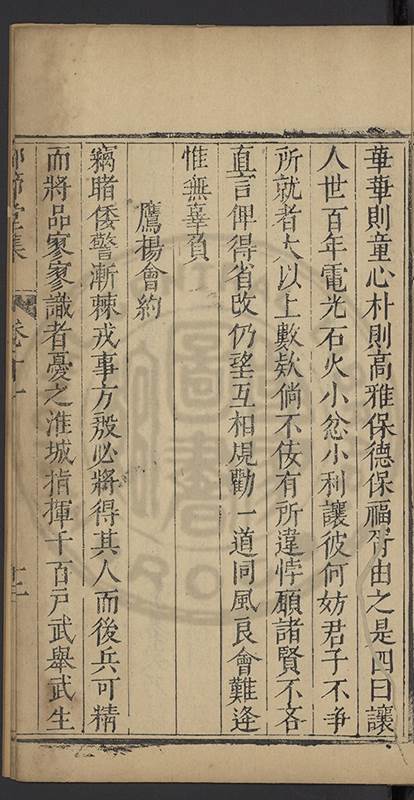 華華則童心朴則高雅保德保福胥由之是四曰讓
人世百年電光石火小忿小利讓彼何妨君子不爭
所就者大以上數欵倘不佞有所違悖願諸賢不吝
直言俾得省改仍望互相規勸一道同風良會難逢
惟無辜負
鷹揚會約
竊睹倭警漸棘戎事方殷必將得其人而後兵可精
而將品寥寥識者憂之淮城指揮千百戸武舉武生
節堂集
卷十一
十二